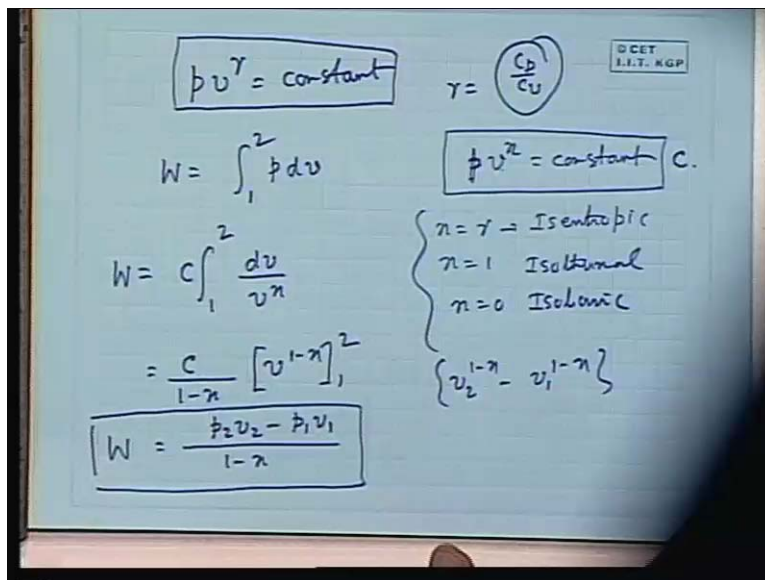 pv^γ = constant
γ = Cp/Cv
© CET
I.I.T. KGP
W = ∫₁² p dv
pv^n = constant C.
n = γ → Isentropic
n = 1 Isothermal
n = 0 Isobaric
W = C ∫₁² dv/v^n
= C/(1-n) [v^(1-n)]₁²
{v₂^(1-n) - v₁^(1-n)}
W = (p₂v₂ - p₁v₁)/(1-n)